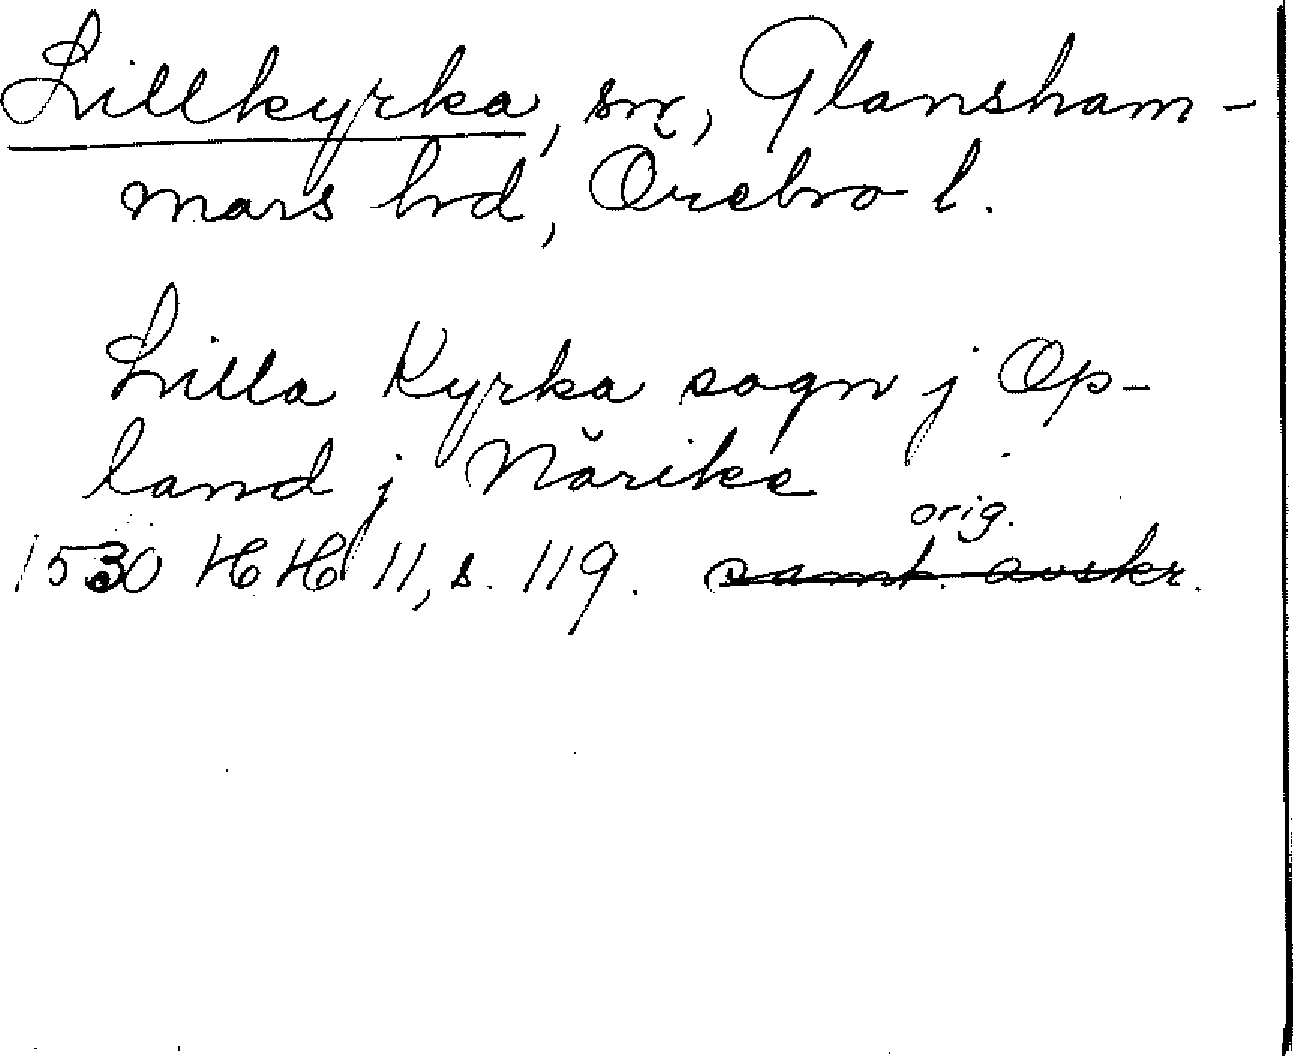 Lillkyrka, sn, Glansham-
mars hd, Örebro l.
Lilla Kyrka sogn j Op-
land j Närike
orig.
1530 HH 11, s. 119. samt. avskr.